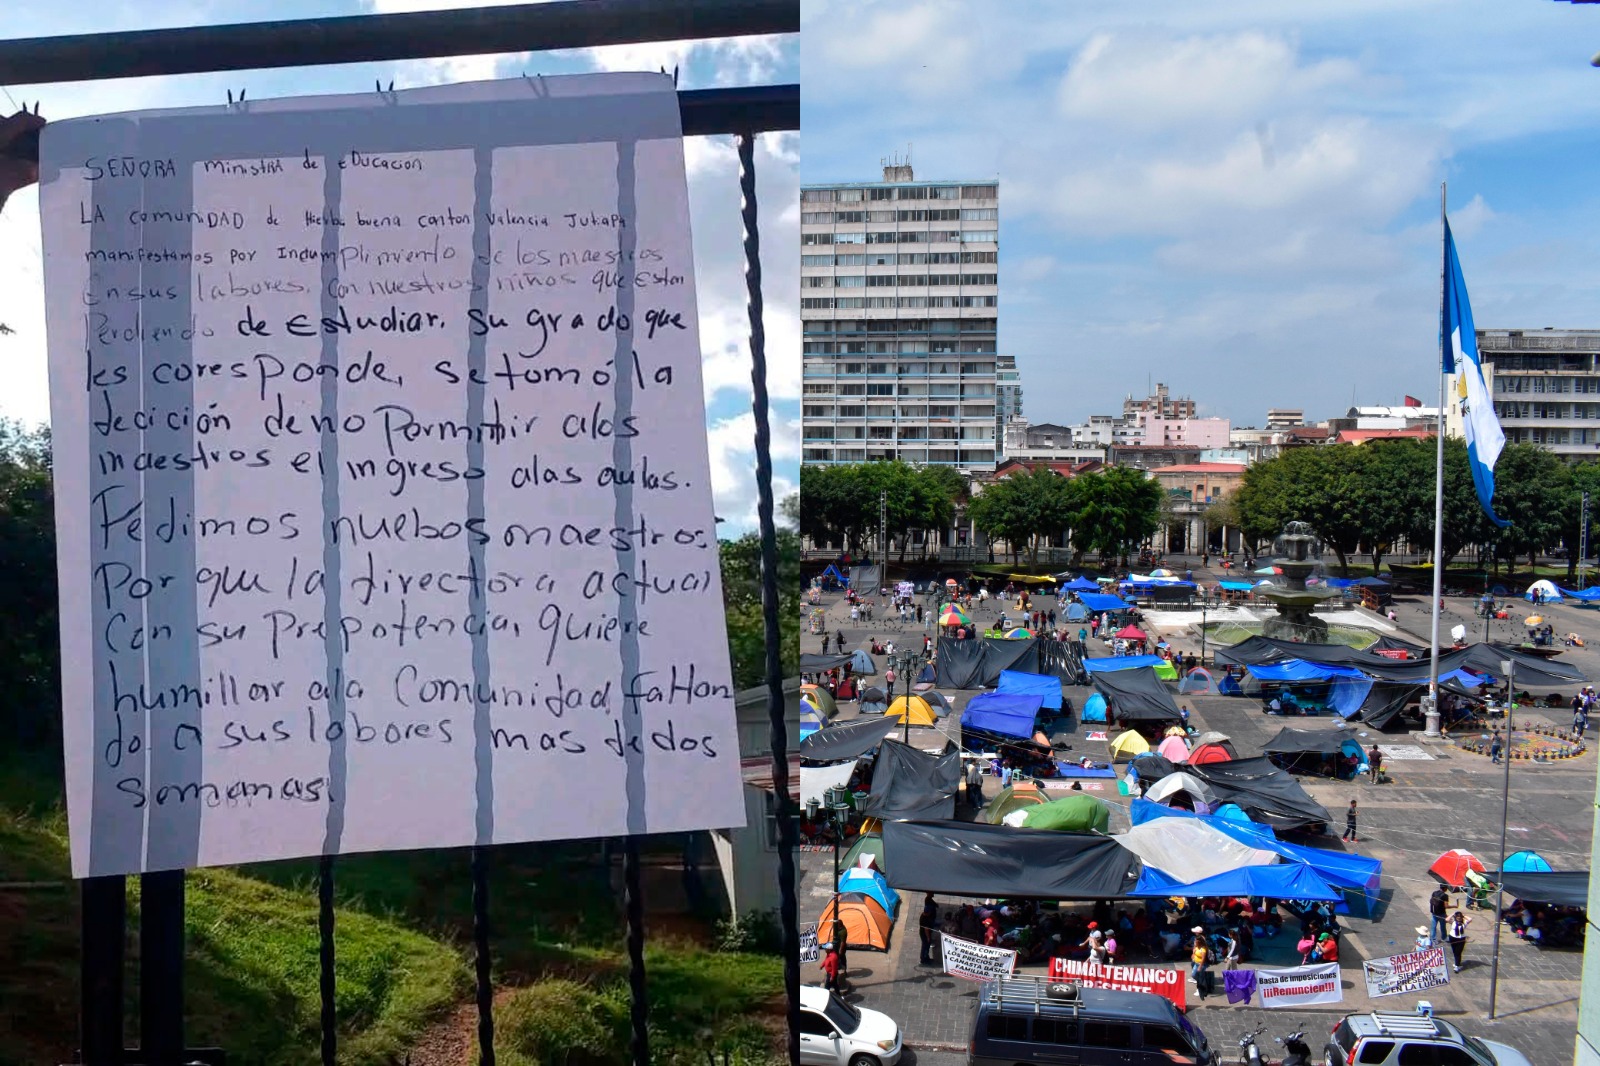 SEÑORA ministRA de EDUcacion
LA comuniDAD de Hierba buena canton Valencia Jutiapa
manifestamos por Incumplimiento de los maestros
En sus labores. Con nuestros niños que Estan
Perdiendo de Estudiar. su grado que
les coresponde, se tomó la
decición de no Permitir alos
maestros el ingreso alas aulas.
Pedimos nuebos maestros
Por que la directora actual
Con su Prepotencia, Quiere
humillar ala Comunidad, faltan
do a sus labores mas de dos
semanas.
EXIGIMOS CONTROL
Y REBAJA DE
LOS PRECIOS DE
CANASTA BÁSICA
FAMILIAR.
CHIMALTENANGO
PRESENTE
Basta de imposiciones
¡¡¡Renuncien!!!
SAN MARTÍN
JILOTEPEQUE
SIEMPRE
PRESENTE
EN LA LUCHA